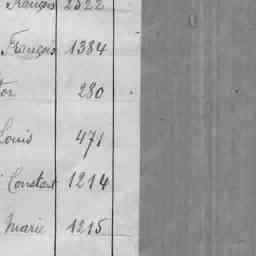 François 2322
François 1384
tor 280
Louis 471
Constant 1214
Marie 1215